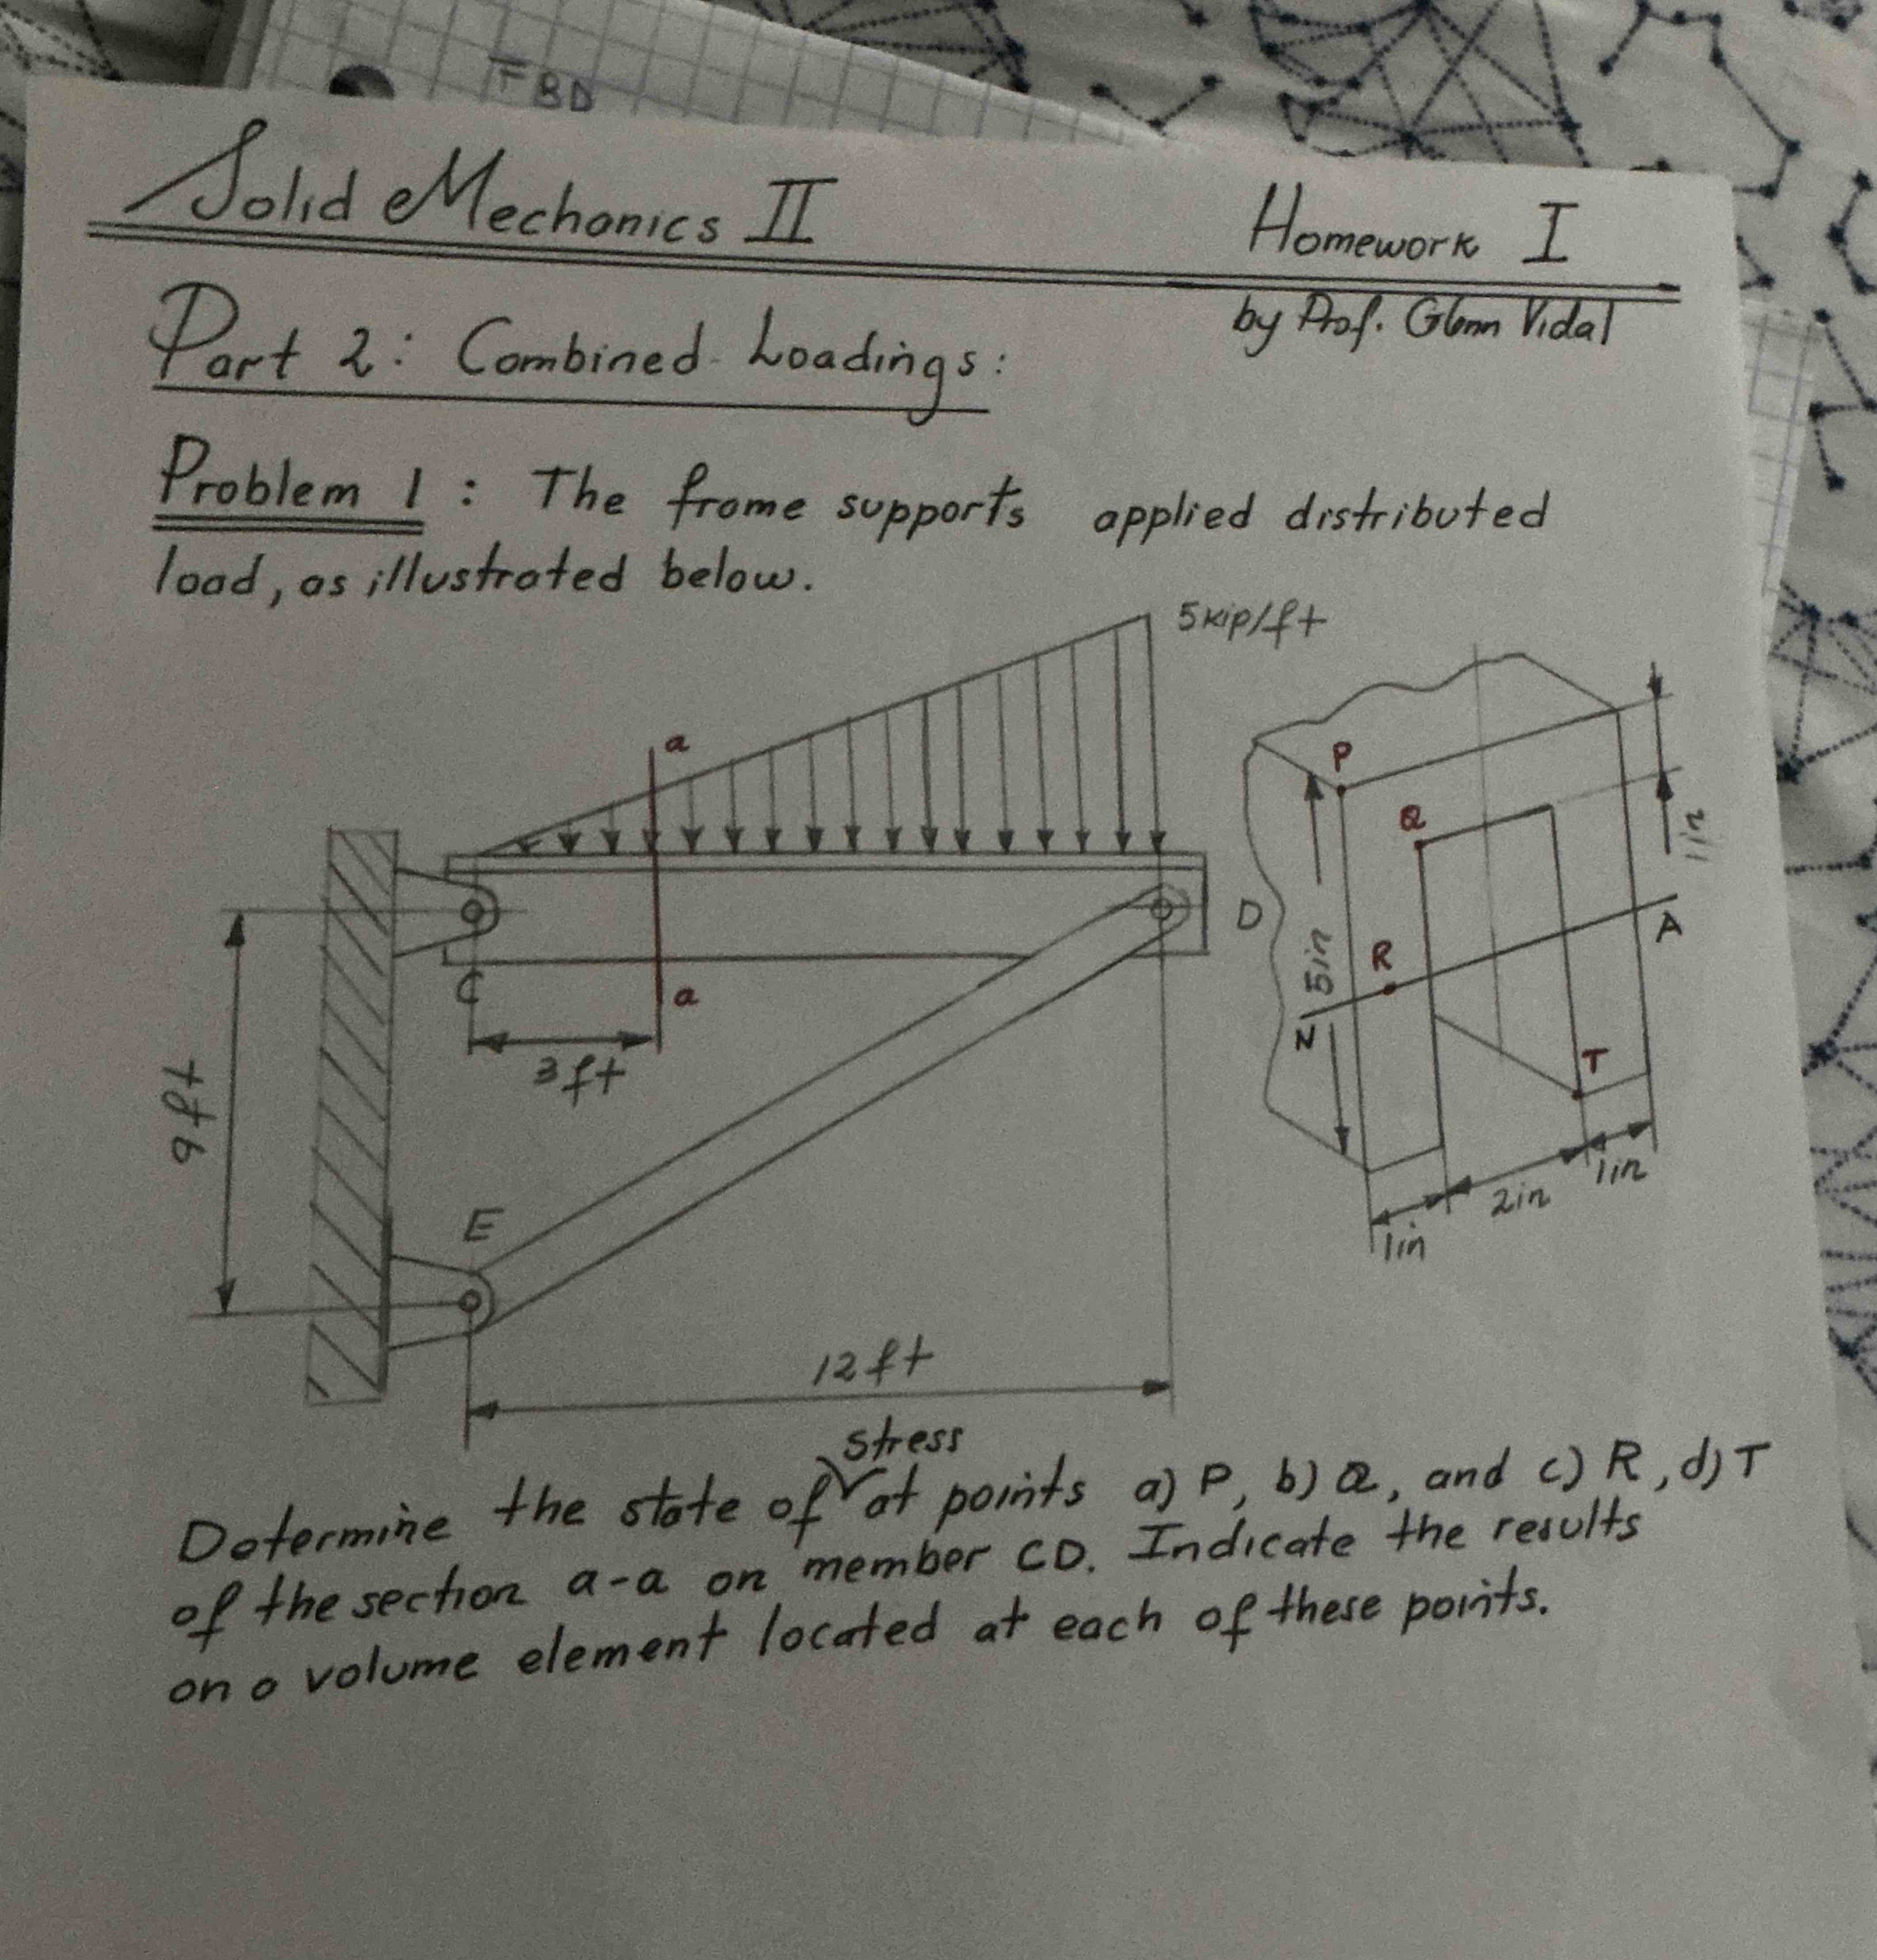 FBD
Solid Mechanics II
Homework I
by Prof. Glenn Vidal
Part 2: Combined Loadings:
Problem 1: The frame supports applied distributed
load, as illustrated below.
5kip/ft
a
P
Q
1in
D
A
5in
R
C
a
N
3ft
T
9ft
1in
2in
1in
E
12ft
stress
Determine the state of at points a) P, b) Q, and c) R, d) T
of the section a-a on member CD. Indicate the results
on a volume element located at each of these points.